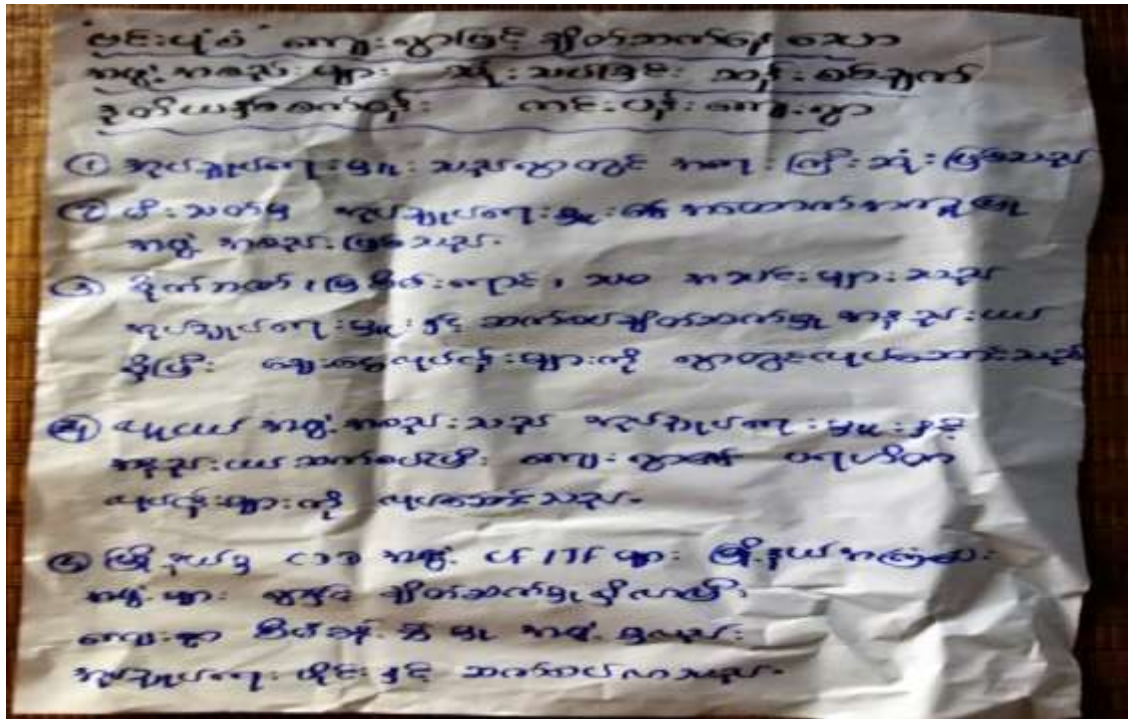 "ဗင်းပုံစံ" ကျေးရွာဖြင့် ချိတ်ဆက်နေ သော
အဖွဲ့ အစည်း များ သုံး သပ်ခြင်း ဘုန်း
ဒုတိယနှစ် ကင်းပုန်း ကျေးရွာ
① အုပ်ချုပ်ရေးမှူး သည်ရွာတွင် အရေး ကြီး ဆုံး ဖြစ်သည်
② မီး သတ်မှ အုပ်ချုပ်ရေးမှူး ၏ အထောက်အကူပြု
အဖွဲ့ အစည်း ဖြစ်သည်.
③ စိုက်ဘဏ် ၊ မြစိမ်းရောင် ၊ သမ အသင်း များ သည်
အုပ်ချုပ်ရေးမှူး နှင့် ဆက်စပ် ချိတ်ဆက်မှု အနည်းငယ်
ရှိပြီး ချေးငွေလုပ်ငန်းများကို ရွာတွင်လုပ်ဆောင်သည်
④ လူငယ် အဖွဲ့အစည်း သည် အုပ်ချုပ်ရေးမှူး နှင့်
အနည်းငယ် ဆက်စပ်ပြီး ကျေး ရွာ၏ ပရဟိတ
လုပ်ငန်းများကို လုပ်ဆောင်သည်.
⑤ မြို့နယ်မှ အဖွဲ့ များ မြို့နယ်
အဖွဲ့ များ ချိတ်ဆက်မှု ရှိလာပြီး
ကျေးရွာ စီမံခန့် ခွဲ မှု အဖွဲ့ မှလည်း
အုပ်ချုပ်ရေး ပိုင်း နှင့် ဆက်စပ်လာသည်.